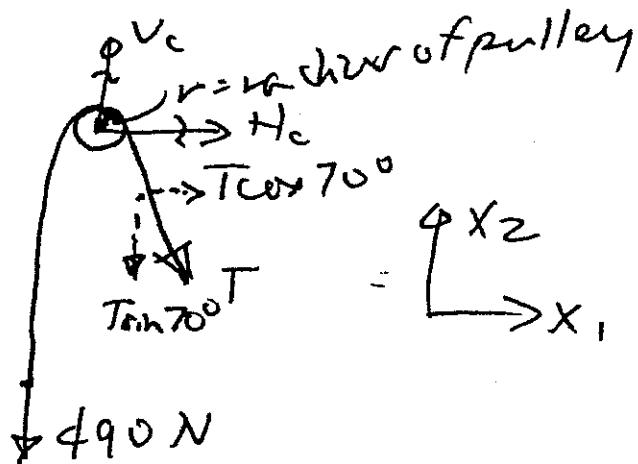 Vc
r = radius of pulley
Hc
Tcos 70°
X2
T
Tsin 70°
X1
490 N